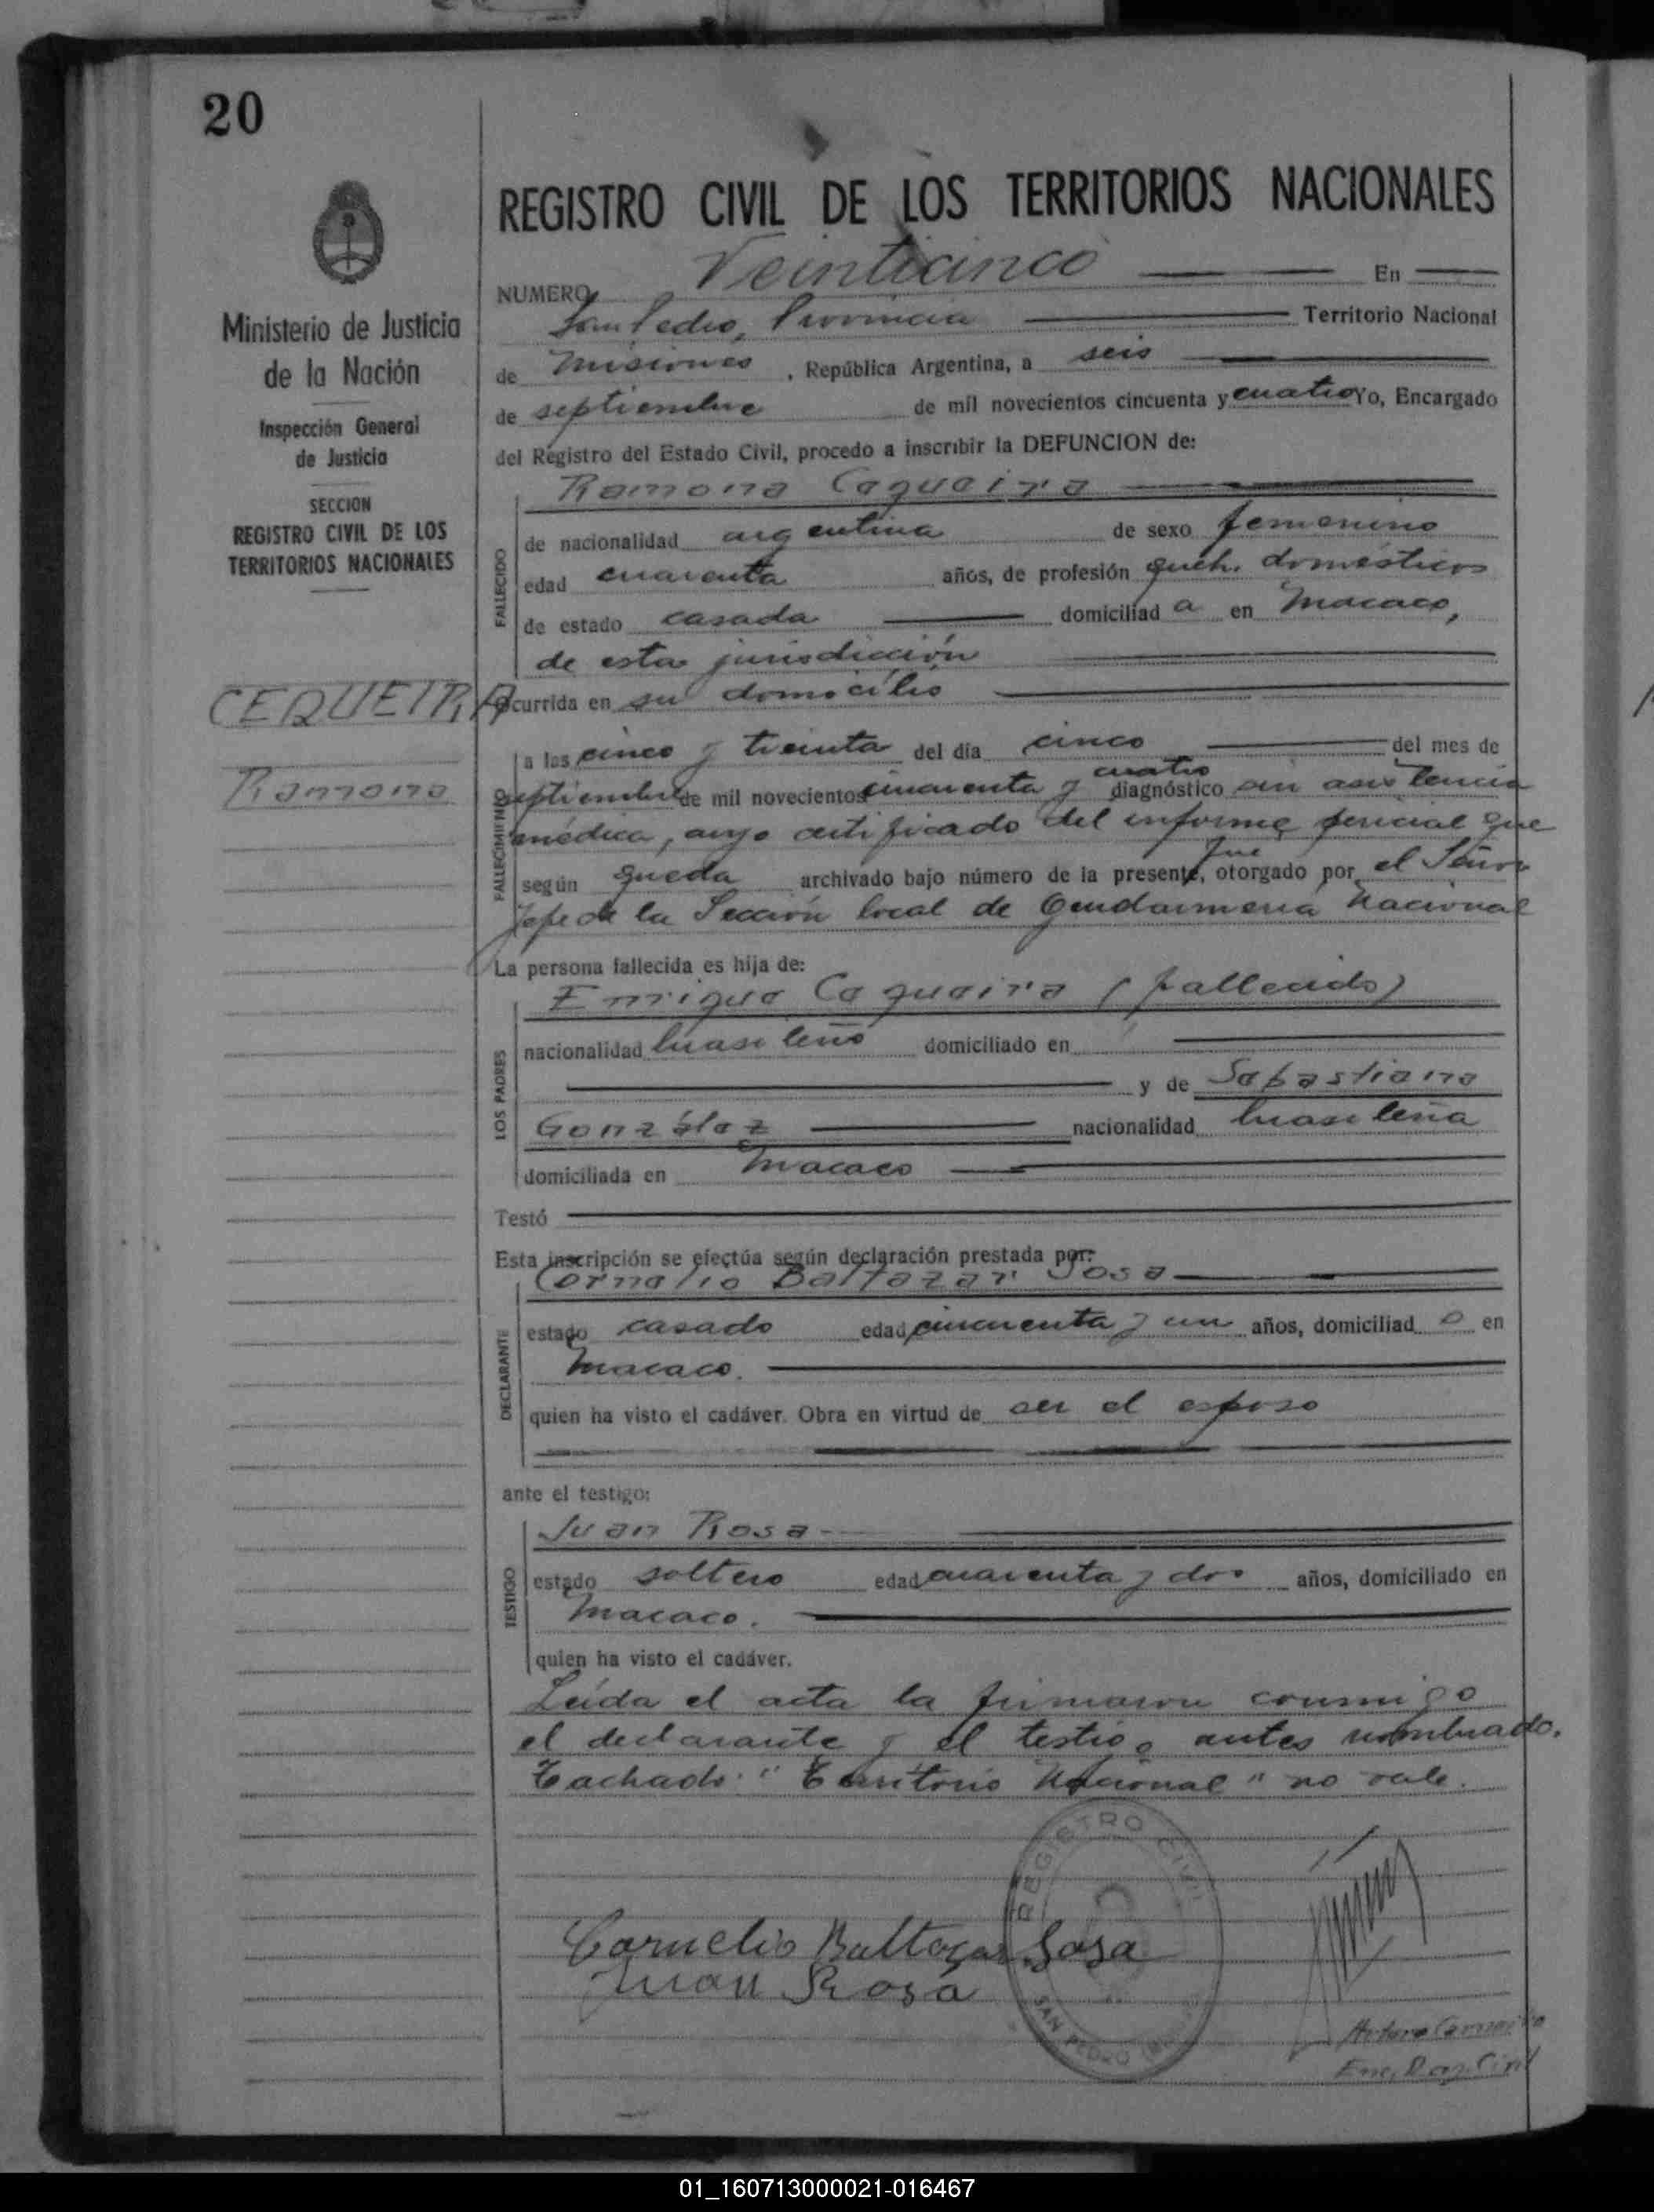 20
REGISTRO CIVIL DE LOS TERRITORIOS NACIONALES
Ministerio de Justicia
de la Nación
Inspección General
de Justicia
SECCION
REGISTRO CIVIL DE LOS
TERRITORIOS NACIONALES
CEQUEIRA
Ramona
NUMERO Veinticinco En
San Pedro, Provincia Territorio Nacional
de Misiones, República Argentina, a seis
de septiembre de mil novecientos cincuenta y cuatro Yo, Encargado
del Registro del Estado Civil, procedo a inscribir la DEFUNCION de:
FALLECIDO
Ramona Cequeira
de nacionalidad argentina de sexo femenino
edad cuarenta años, de profesión queh. domésticos
de estado casada domiciliad a en Macaco,
de esta jurisdicción
Ocurrida en su domicilio
FALLECIMIENTO
a las cinco y treinta del día cinco del mes de
cuatro
septiembre de mil novecientos cincuenta y diagnóstico sin asistencia
médica, cuyo certificado del informe pericial que
fue
según queda archivado bajo número de la presente, otorgado por el Señor
Jefe de la Sección local de Gendarmeria Nacional
La persona fallecida es hija de:
LOS PADRES
Enrique Cequeira (fallecido)
nacionalidad brasileño domiciliado en
y de Sebastiana
González nacionalidad brasileña
domiciliada en Macaco
Testó
Esta inscripción se efectúa según declaración prestada por:
DECLARANTE
Cornelio Baltazar Sosa
estado casado edad cincuenta y un años, domiciliad o en
Macaco.
quien ha visto el cadáver. Obra en virtud de ser el esposo
ante el testigo:
TESTIGO
Juan Rosa
estado soltero edad cuarenta y dos años, domiciliado en
Macaco.
quien ha visto el cadáver.
Leída el acta la firmaron conmigo
el declarante y el testigo antes nombrado.
Tachado: "Territorio Nacional" no vale.
REGISTRO CIVIL
SAN PEDRO
Cornelio Baltazar Sosa
Juan Rosa
Arturo
Enc. Reg. Civil
01_160713000021-016467